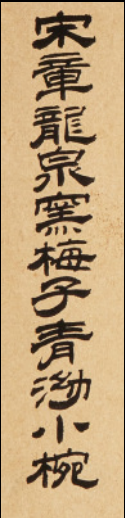 宋章龍泉窯梅子青泑小椀